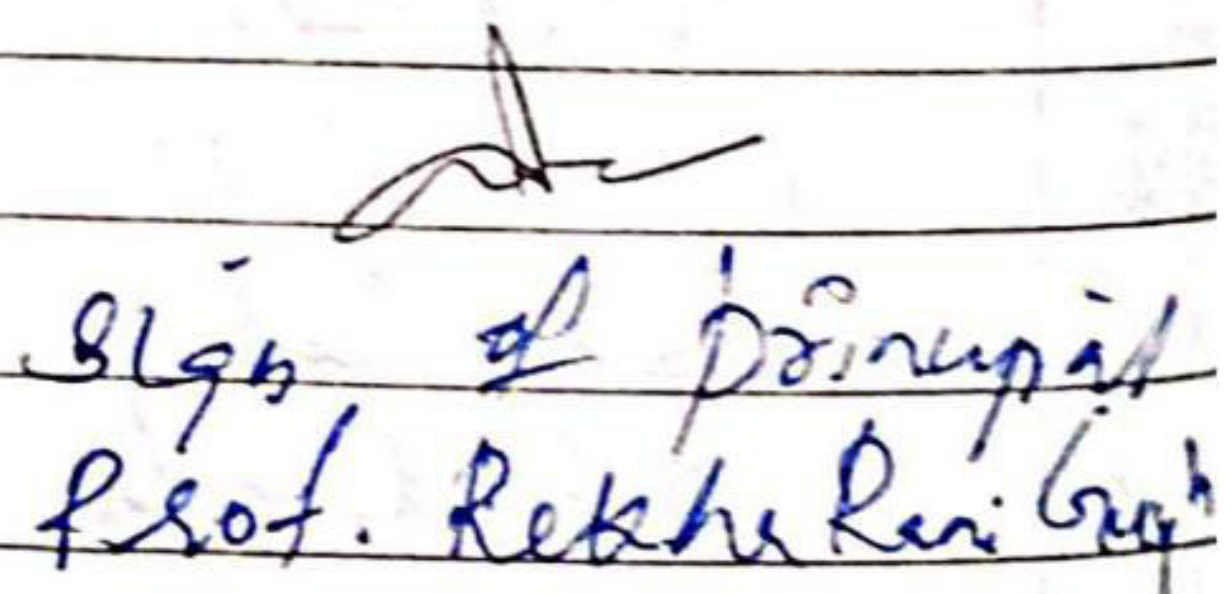 Sign of principal
Prof. Rekha Rani